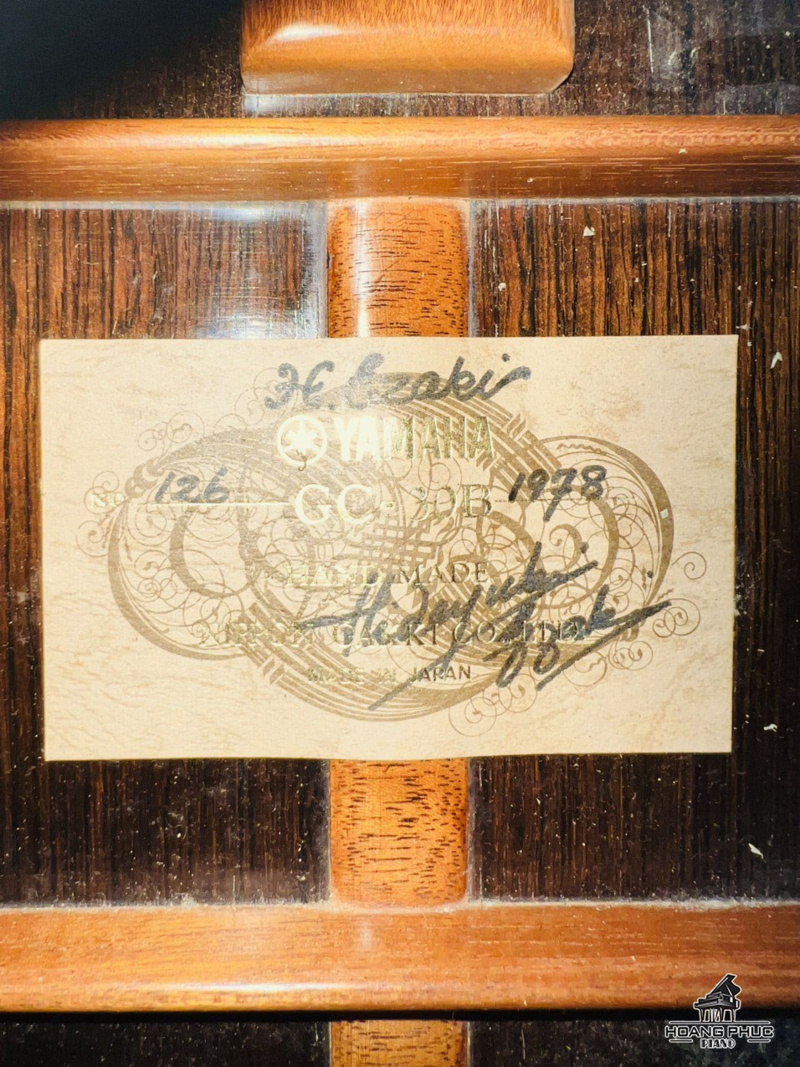 H. Ezaki
YAMAHA
No. 126 GC-30B 1978
HAND MADE
Hideyuki Ezaki
NIPPON GAKKI CO. LTD.
MADE IN JAPAN
HOANG PHUC
PIANO